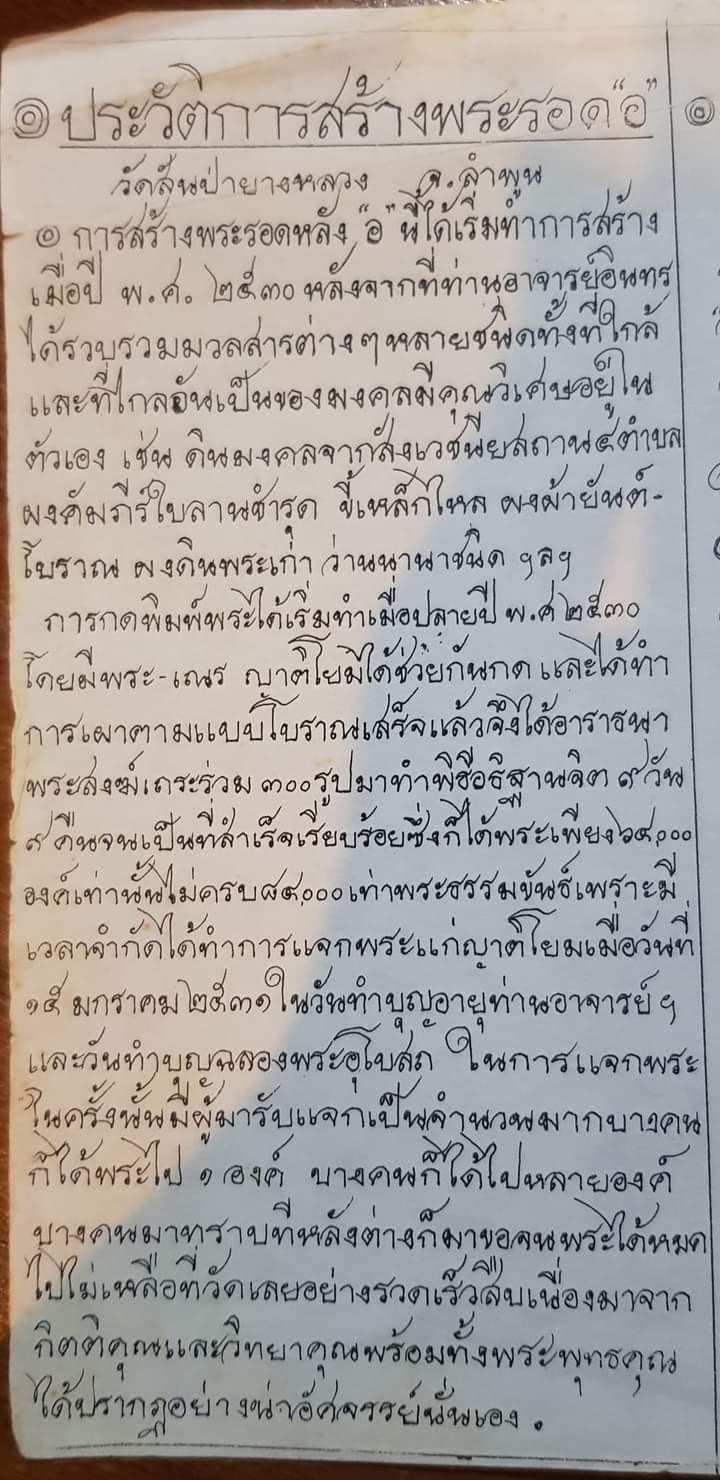 ๏ ประวัติการสร้างพระรอด"อ" ๏
วัดสันป่ายางหลวง จ.ลำพูน
๏ การสร้างพระรอดหลัง "อ" นี้ได้เริ่มทำการสร้าง
เมื่อปี พ.ศ. ๒๕๓๐ หลังจากที่ท่านอาจารย์อินทร
ได้รวบรวมมวลสารต่างๆหลายชนิดทั้งที่ใกล้
และที่ไกลอันเป็นของมงคลมีคุณวิเศษอยู่ใน
ตัวเอง เช่น ดินมงคลจากสังเวชนียสถาน๕ตำบล
ผงคัมภีร์ใบลานชำรุด ขี้เหล็กไหล ผงผ้ายันต์-
โบราณ ผงดินพระเก่า ว่านนานาชนิด ฯลฯ
การกดพิมพ์พระได้เริ่มทำเมื่อปลายปี พ.ศ ๒๕๓๐
โดยมีพระ-เณร ญาติโยมได้ช่วยกันกด และได้ทำ
การเผาตามแบบโบราณเสร็จแล้วจึงได้อาราธนา
พระสงฆ์เถระร่วม ๓๐๐ รูปมาทำพิธีอธิฐานจิต ๙ วัน
๙ คืนจนเป็นที่สำเร็จเรียบร้อยซึ่งก็ได้พระเพียง๖๔,๐๐๐
องค์เท่านั้นไม่ครบ๘๔,๐๐๐เท่าพระธรรมขันธ์เพราะมี
เวลาจำกัดได้ทำการแจกพระแก่ญาติโยมเมื่อวันที่
๑๕ มกราคม ๒๕๓๑ ในวันทำบุญอายุท่านอาจารย์ ฯ
และวันทำบุญฉลองพระอุโบสถ ในการแจกพระ
ในครั้งนั้นมีผู้มารับแจกเป็นจำนวนมากบางคน
ก็ได้พระไป ๑ องค์ บางคนก็ได้ไปหลายองค์
บางคนมาทราบทีหลังต่างก็มาขอจนพระได้หมด
ไปไม่เหลือที่วัดเลยอย่างรวดเร็วสืบเนื่องมาจาก
กิตติคุณและวิทยาคุณพร้อมทั้งพระพุทธคุณ
ได้ปรากฏอย่างน่าอัศจรรย์นั่นเอง .